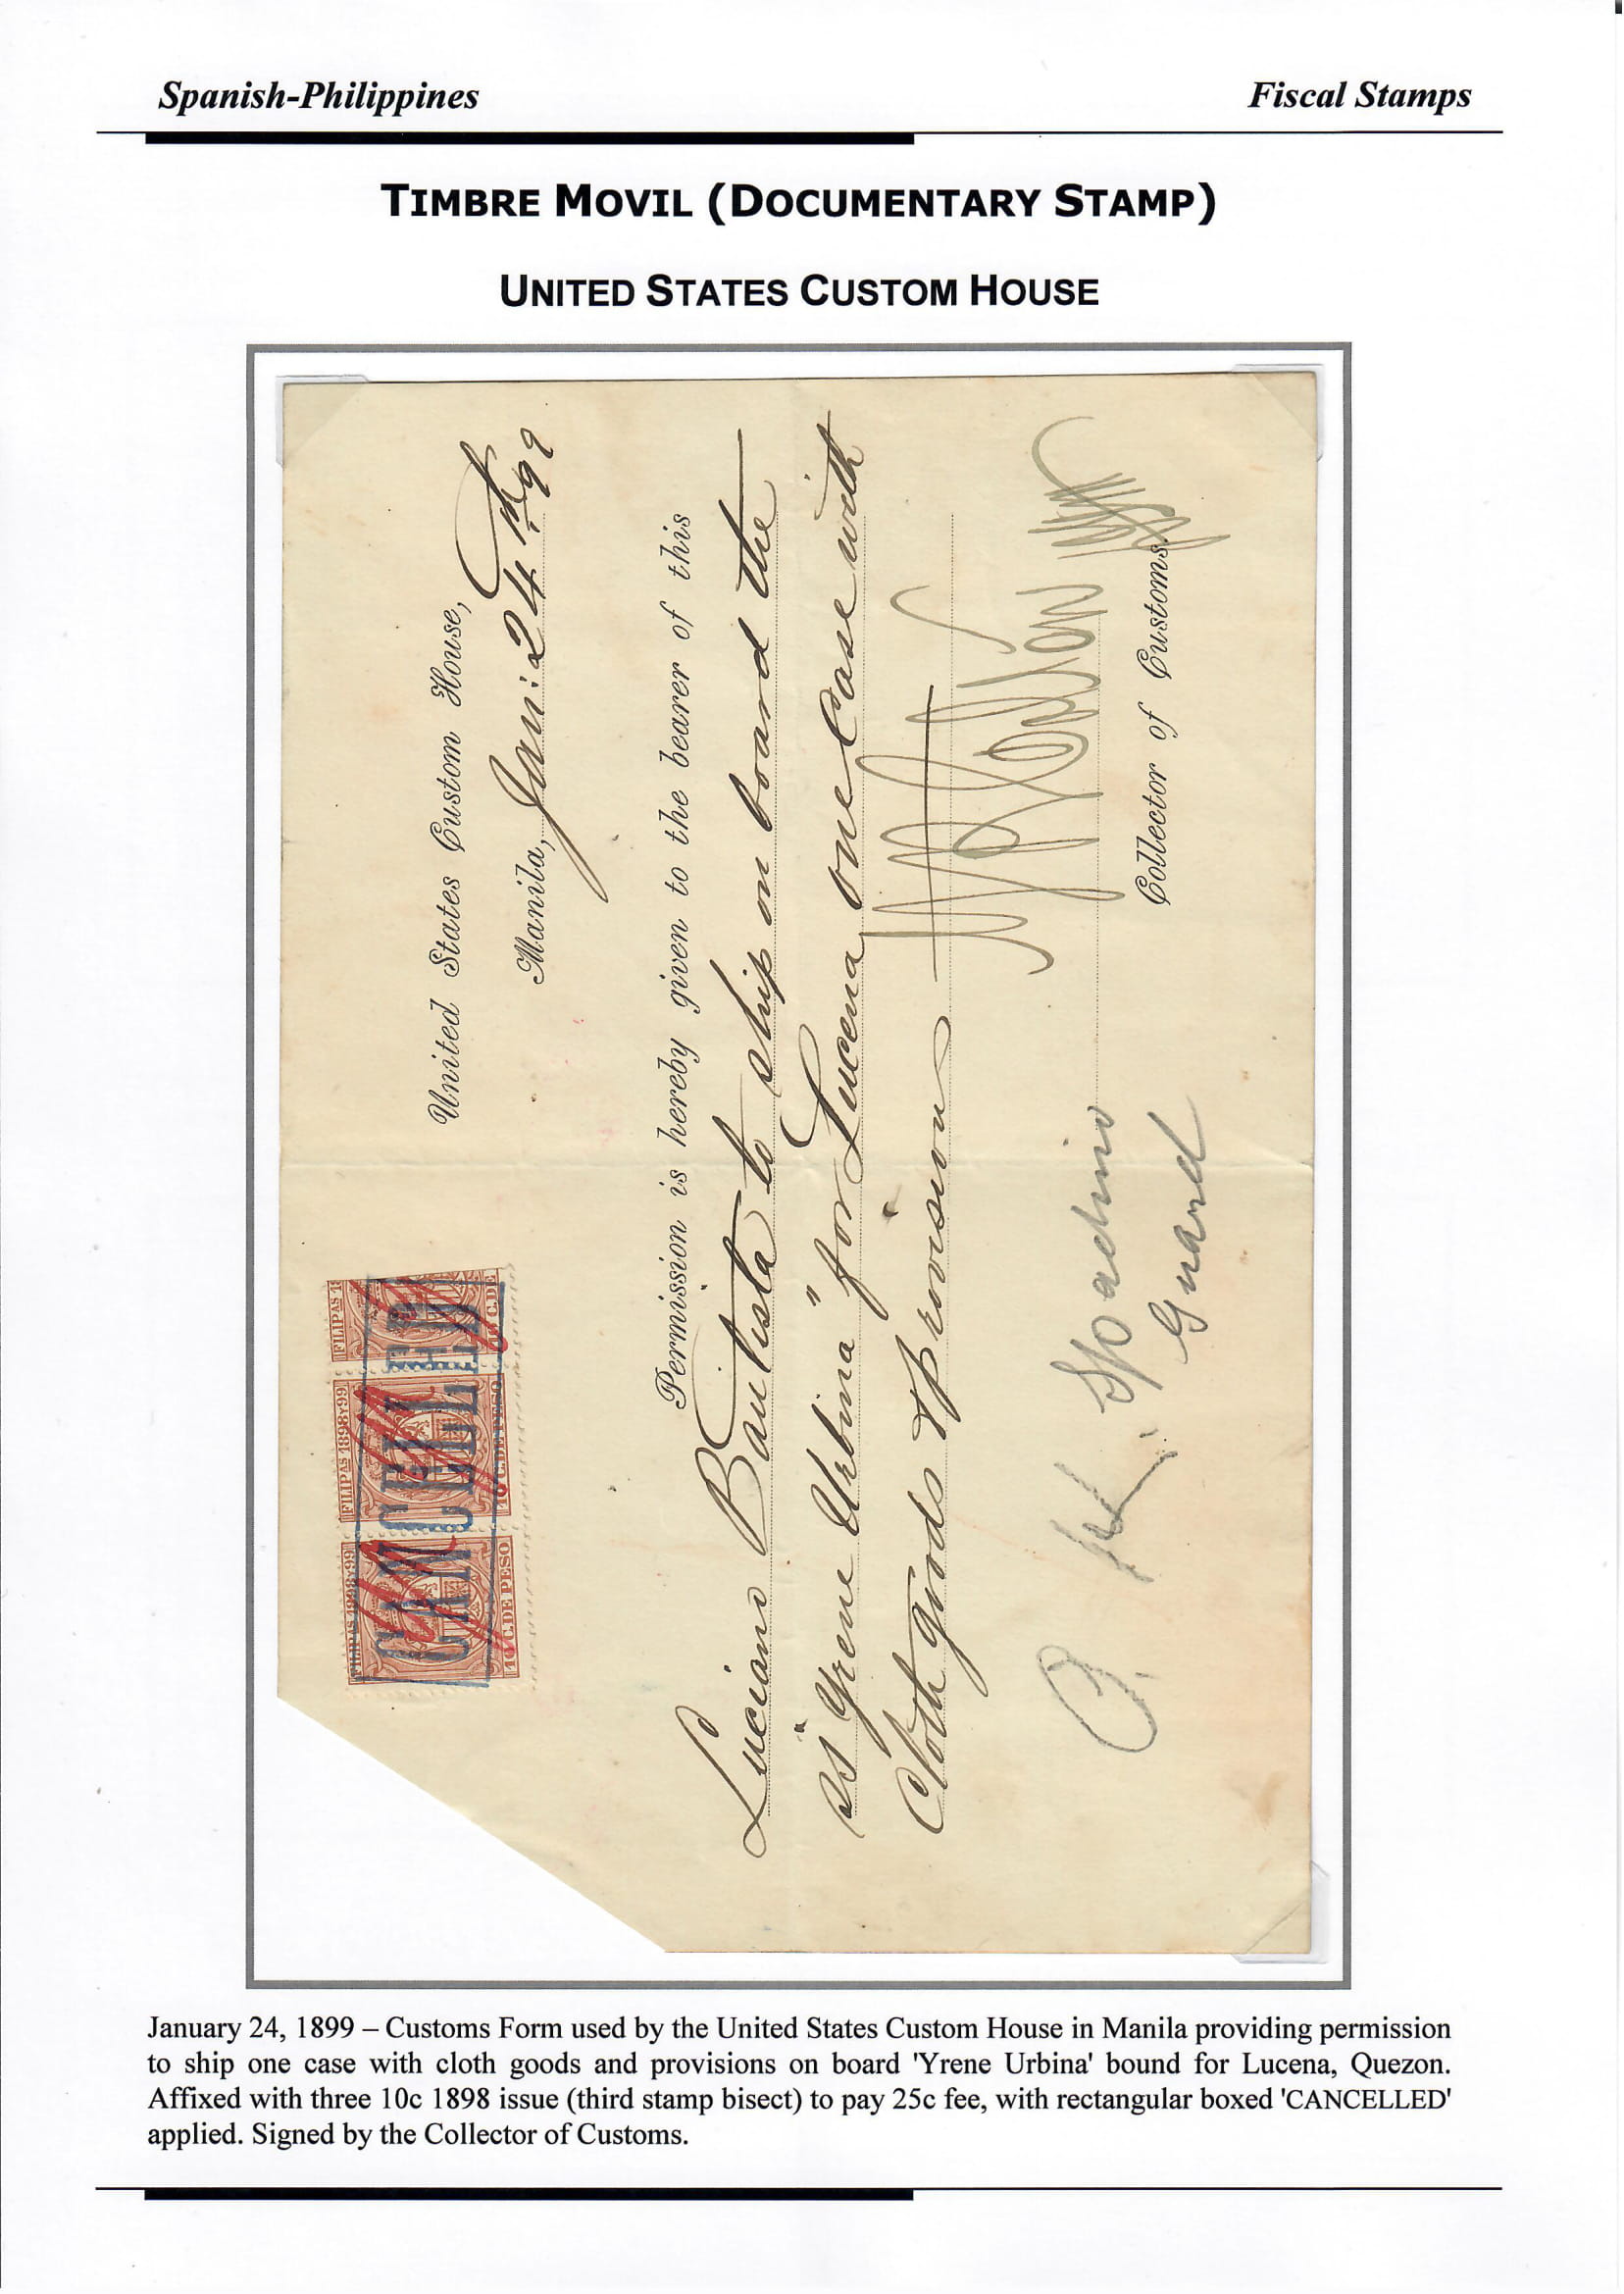 Spanish-Philippines
Fiscal Stamps
TIMBRE MOVIL (DOCUMENTARY STAMP)
UNITED STATES CUSTOM HOUSE
United States Custom House,
Manila, Jan: 24th 99
Permission is hereby given to the bearer of this
Luciano Bautista to ship on board the
ss "Yrene Urbina" for Lucena one Case with
Cloth goods & provision
Collector of Customs.
O. K. Spadino
Guard
FILIPAS 1898 Y 99
10 C. DE PESO
FILIPAS 1898 Y 99
10 C. DE PESO
FILIPAS 18
10 C. DE
CANCELLED
January 24, 1899 – Customs Form used by the United States Custom House in Manila providing permission
to ship one case with cloth goods and provisions on board 'Yrene Urbina' bound for Lucena, Quezon.
Affixed with three 10c 1898 issue (third stamp bisect) to pay 25c fee, with rectangular boxed 'CANCELLED'
applied. Signed by the Collector of Customs.